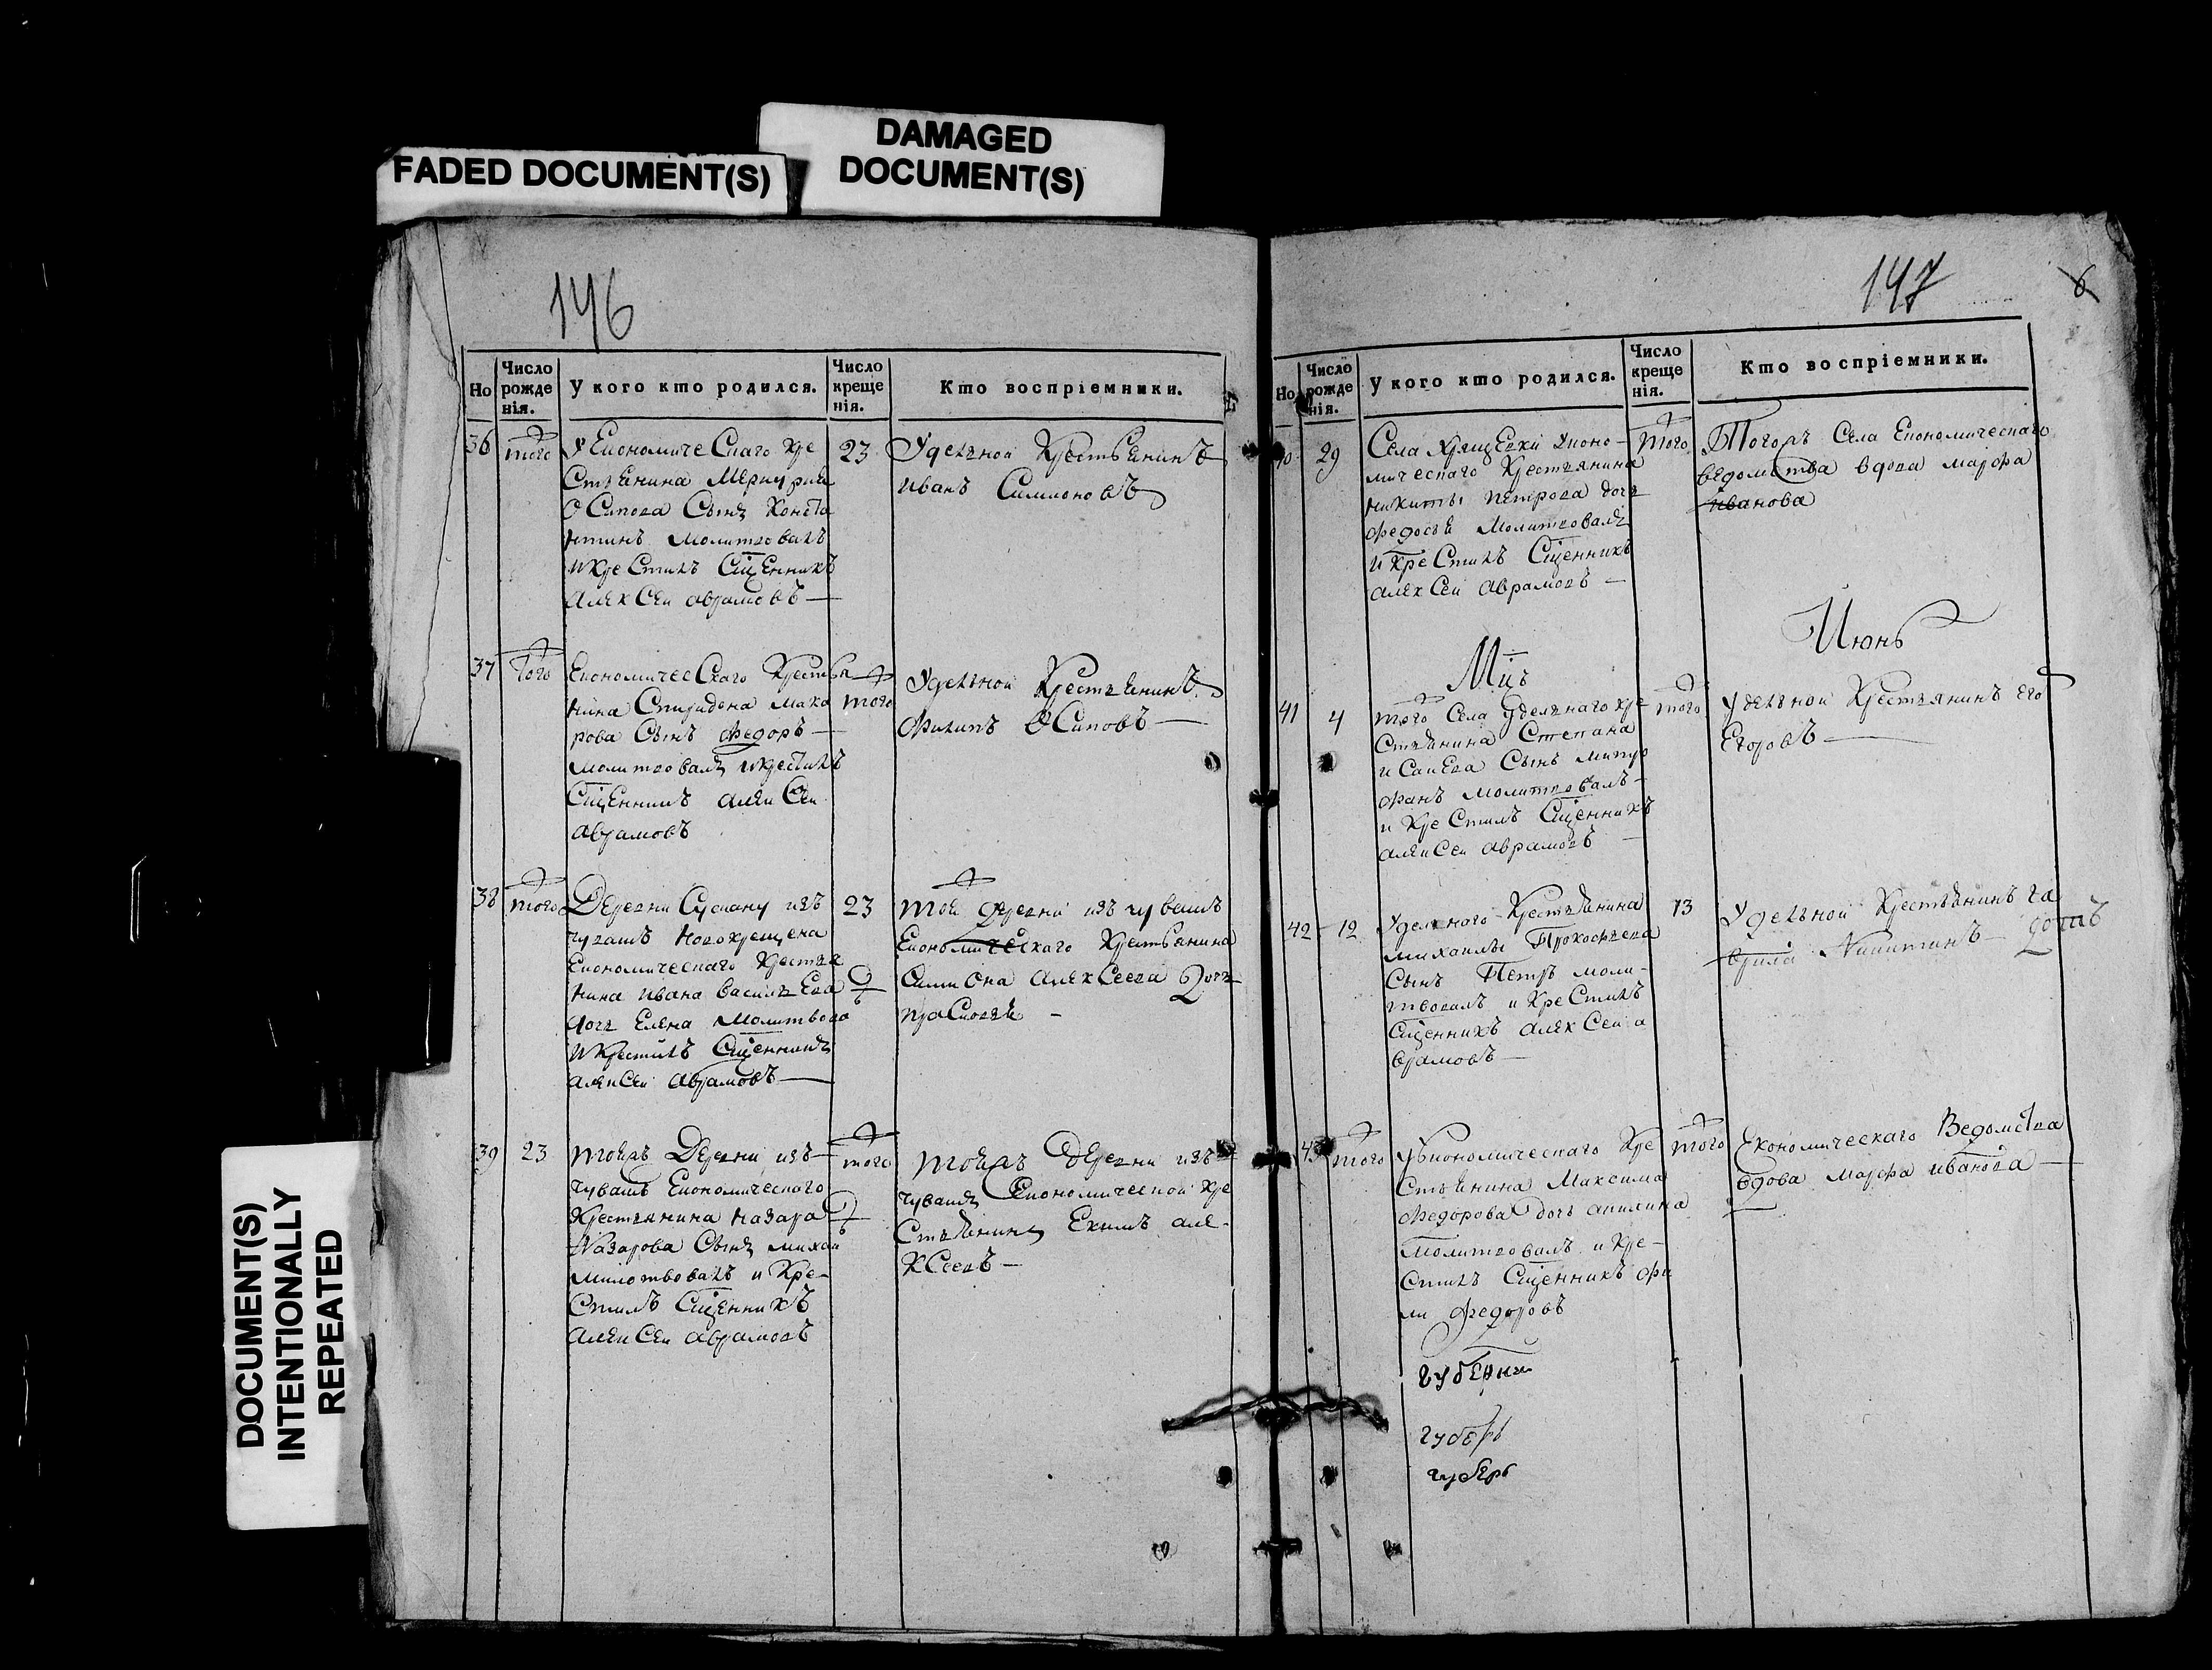 DAMAGED
DOCUMENT(S)
FADED DOCUMENT(S)
DOCUMENT(S)
INTENTIONALLY
REPEATED
146
Но
Число
рожде
нія.
У кого кто родился.
Число
креще
нія.
Кто воспріемники.
36
того
У Економическаго кре
стьянина Меркурия
Осипова Сынъ Конста
нтинъ молитвовалъ
и крестилъ Сщенникъ
алексеи аврамовъ
23
Удельной Крестьянинъ
иванъ Симионовъ
37
того
Економическаго Крестья
нина Спиридона Мака
рова Сынъ Федоръ
молитвовалъ и крестилъ
Сщенникъ алексеи
аврамовъ
того
Удельной Крестьянинъ
Филипъ Осиповъ
38
того
Деревни изъ
чувашъ новокрещена
Економическаго Крестья
нина ивана васильева
дочь Елена молитвова
и крестилъ Сщенникъ
алексеи аврамовъ
23
тои деревни изъ чувашъ
Економическаго Крестьянина
Симиона алексеева дочь
39
23
Деревни изъ
чувашъ Економическаго
Крестьянина назара
Назарова Сынъ михаи
милотвовалъ и Кре-
стилъ Сщенникъ
алексеи аврамовъ
того
деревни изъ
чувашъ Економической кре
стьянинъ Екимъ але-
ксеевъ
147
6
Но
Число
рожде
нія.
У кого кто родился.
Число
креще
нія.
Кто воспріемники.
40
29
Села Хрящевки Эконо-
мическаго Крестьянина
никиты петрова дочь
федосья молитвовалъ
и крестилъ Сщенникъ
алексеи аврамовъ
того
Тогожъ Села Економическаго
ведомства вдова марфа
иванова
Мцъ
Июнь
41
4
того Села Удельнаго кре
стьянина Степана
исаиева Сынъ митро
фанъ молитвовалъ
и крестилъ Сщенникъ
алексеи аврамовъ
того
Удельной Крестьянинъ его
Егоровъ
42
12
Удельного Крестьянина
михаилы Прокофьева
Сынъ Петръ моли-
твовалъ и крестилъ
Сщенникъ алексеи а
врамовъ
13
Удельной Крестьянинъ га
врила Никитинъ
43
того
У Економическаго Кре
стьянина Максима
федорова дочь акилина
молитвовалъ и кре-
стилъ Сщенникъ
федоровъ
того
Економическаго Ведомства
вдова марфа иванова
губерни
губерь
губерь